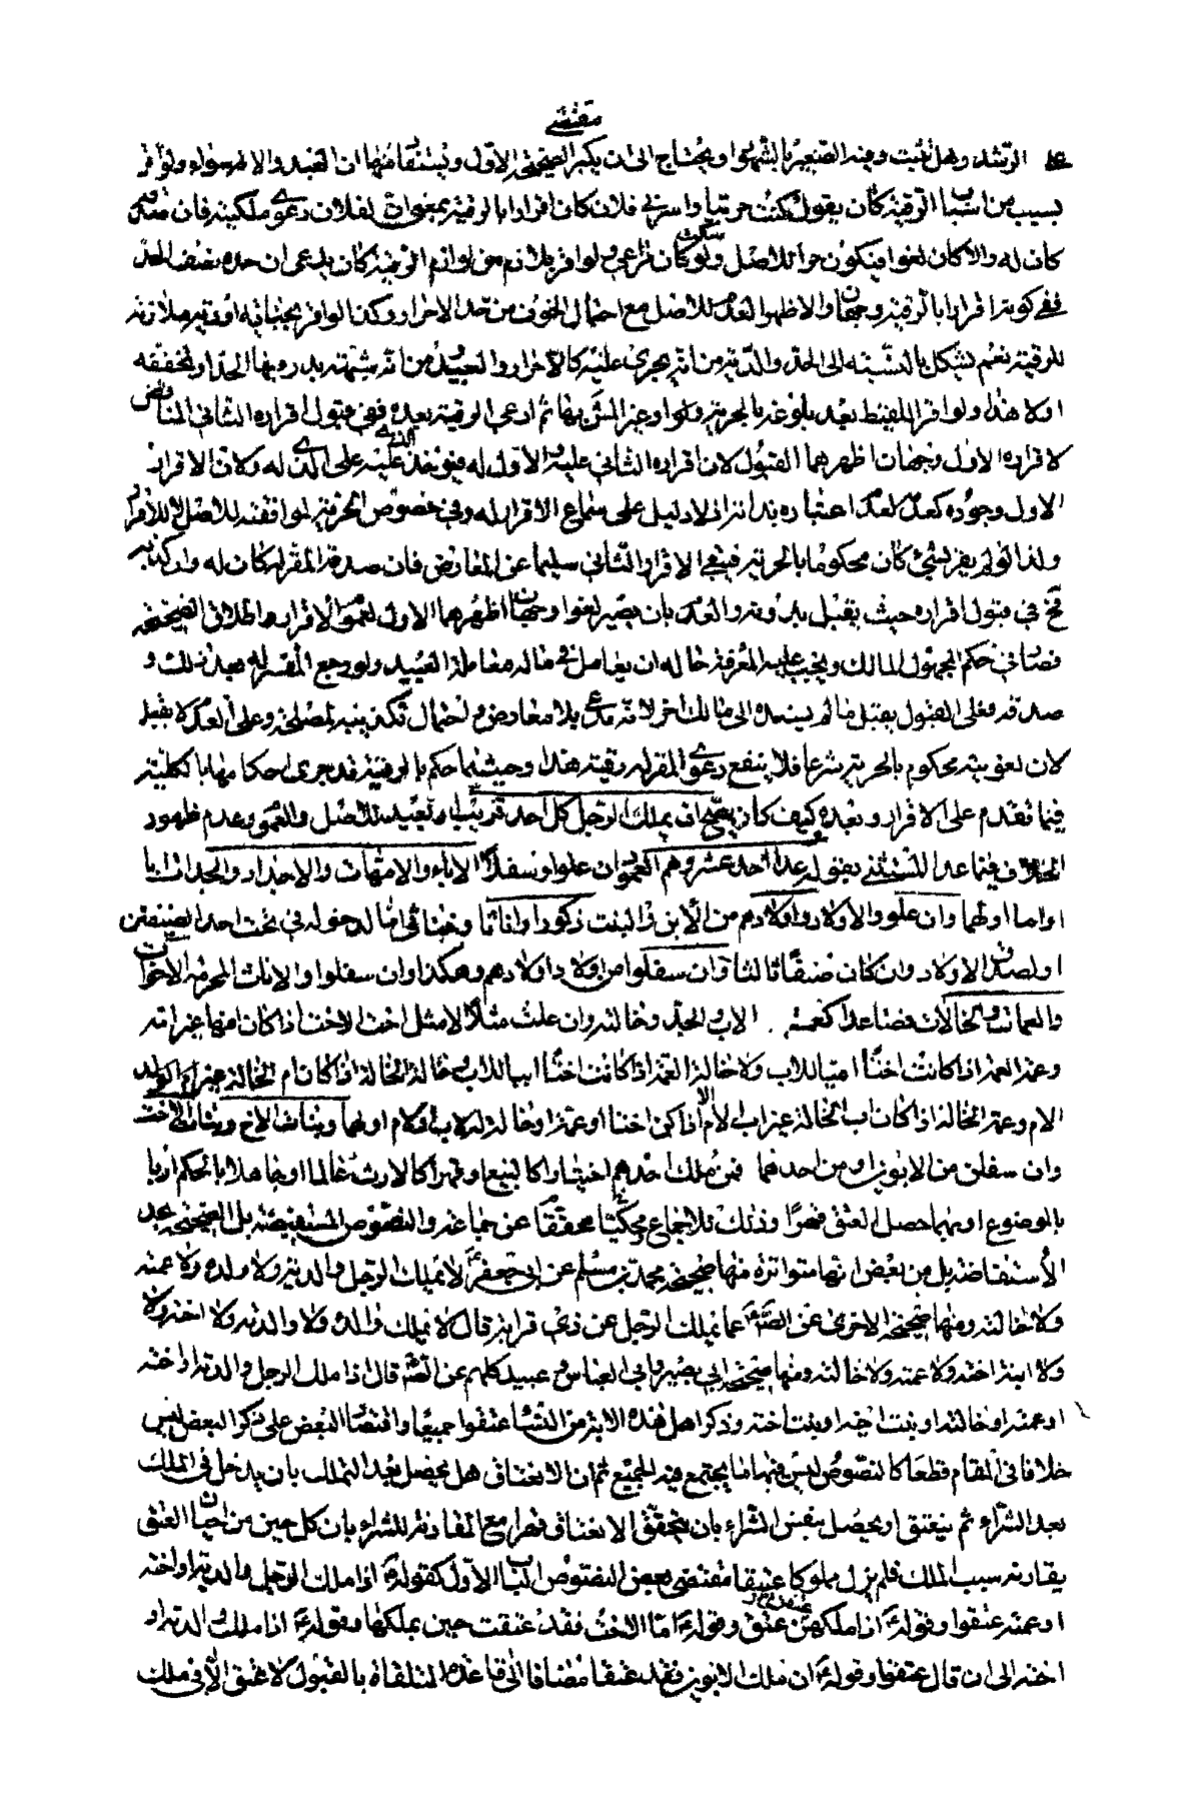 مقتضى
الرشد وهل تثبت رقية الصغير بالشهرة او يحتاج الى ان يكبر الصحيحة الاول ويستفاد منها ان العبد والامة سواء ولو اقر
بسبب من اسباب الرقية كان يقول كنت حربيا واسرني فلان كان اقرارا بالرقية بمعنى ان لفلان دعوى ملكيته فان
كان له والا كان لغوا فيكون حرا للاصل ولو كان ولو اقر بلازم من لوازم الرقية كان يدعي ان حده نصف الحد
ففي كونه اقرارا بالرقية وجهان والاظهر العدم للاصل مع احتمال الخوف من حد الاحرار وكذا لو اقر بجناية
للرقية نعم يشكل بالنسبة الى الحد والدية من انه يجري عليه كالاحرار والعبيد من انه شبهة يدرء بها الحد او يخففه
اولا هذا ولو اقر اللقيط بعد بلوغه بالحرية ولو او عز ثم ادعى الرقية بعده ففي قبول اقراره الثاني المناقض
لاقراره الاول وجهان اظهرهما القبول لان اقراره الثاني عليه والاول له فينفذ الذي عليه على الذي له وكان الاقرار
الاول وجوده كعدمه لعدم اعتباره بذاته اذ لا دليل على سماع الاقرار له وفي خصوص الحرية لموافقته للاصل لا للاقرار
ولذا لو لم يقر بشيء كان محكوما بالحرية فيبقى الاقرار الثاني سليما عن المعارض فان صدقه المقر له كان له وان كذبه
ففي قبول اقراره حيث يقبل بدونه والعدم بان يصير لغوا وجهان اظهرهما الاول لعموم الاقرار واطلاق الصحيحة
فصار في حكم المجهول المالك ويجب عليه المعرفة حاله ان يعامل في ماله معاملة العبيد ولو رجع المقر له بعد ذلك و
صدقه فعلى القبول يقبل ما لم يسنده الى مالك اخر لانه مدع بلا معارض واحتمال تكذيبه لمصلحة وعلى العدم لا يقبل
لان لغويته محكوم بالحرية شرعا فلا ينفع دعوى المقر له رقيته هذا وحيثما حكم بالرقية فقد جرى احكامها بالكلية
فيما تقدم على الاقرار وبعده كيف كان يصح ان يملك الرجل كل احد قريب او بعيد للاصل والعموم وعدم ظهور
الخلاف فيما عدا المستثنى بقوله عدا احد عشر وهم العمودان علوا وسفلا الاباء والامهات والاجداد والجدات لاب
او اما او لهما وان علو والاولاد واولادهم من الابن والبنت ذكورا واناثا وخناثى اما لدخوله في تحت احد الصنفين
او لصدق الاولاد وان كان صنفا ثالثا وان سفلوا من اولاد اولادهم وهكذا وان سفلوا والاناث المحرمة الاخوات
والعمات والخالات فصاعدا كعمة الاب والجد وخالته وان علت مثلا لا مثل اخت الاخت اذا كان منها غير امه
وعمة العمة اذا كانت اختا اميا للاب ولا خالة العمة اذا كانت اختا ابيا للاب وخالة الخالة اذا كان ام الخالة غير
الام وعمة الخالة اذا كان اب الخالة غير اب الام اذا كن اختا او عمة او خالة له لاب او لام او لهما وبنات الاخ وبنات الاخت
وان سفلن من الابوين او من احدهما فمن ملك احدهم اختيارا كالبيع او قهرا كالارث عالما او جاهلا بالحكم او با
بالموضوع او بهما حصل العتق قهرا وذلك للاجماع محكيا محققا عن جماعة والنصوص المستفيضة بل الصحيحة بعد
الاستفاضة بل من بعض انها متواترة منها صحيحة محمد بن مسلم عن ابي جعفر ع لا يملك الرجل والديه ولا ولده ولا عمته
ولا خالته ومنها صحيحة الاخرى عن عما يملك الرجل عن ذي قرابة قال لا يملك والده ولا والدته ولا اخته ولا
ولا ابنة اخته ولا عمته ولا خالته ومنها صحيحة ابي بصير وابي العباس وعبيد كلهم عن الص قال اذا ملك الرجل والديه او اخته
او عمته او خالته او بنت اخيه او بنت اخته وذكر اهل هذه الاية من النساء عتقوا جميعا واقتصار البعض على ذكر البعض ليس
خلافا في المقام قطعا كالنصوص ليس فيها ما يجتمع فيه الجميع ثم ان الانعتاق هل يحصل بعد التملك بان يدخل في الملك
بعد الشراء ثم ينعتق او يحصل بنفس الشراء بان يتحقق الانعتاق قهرا مع المقارنة للشراء بان كل حين من احيان العتق
يقارنه سبب الملك فلم يزل مملوكا عتيقا مقتضى بعض النصوص الباب الاول كقوله ع اذا ملك الرجل والديه او اخته
او عمته عتقوا وقوله ع اذا ملكهن عتقن وقوله ع اما الاخت فقد عتقت حين يملكها وقوله ع اذا ملك والديه او
اخته الى ان قال عتقوا وقوله ع ان ملك الابوين فقد عتقا مضافا الى قاعدة المتلقاة بالقبول لا عتق الا في ملك